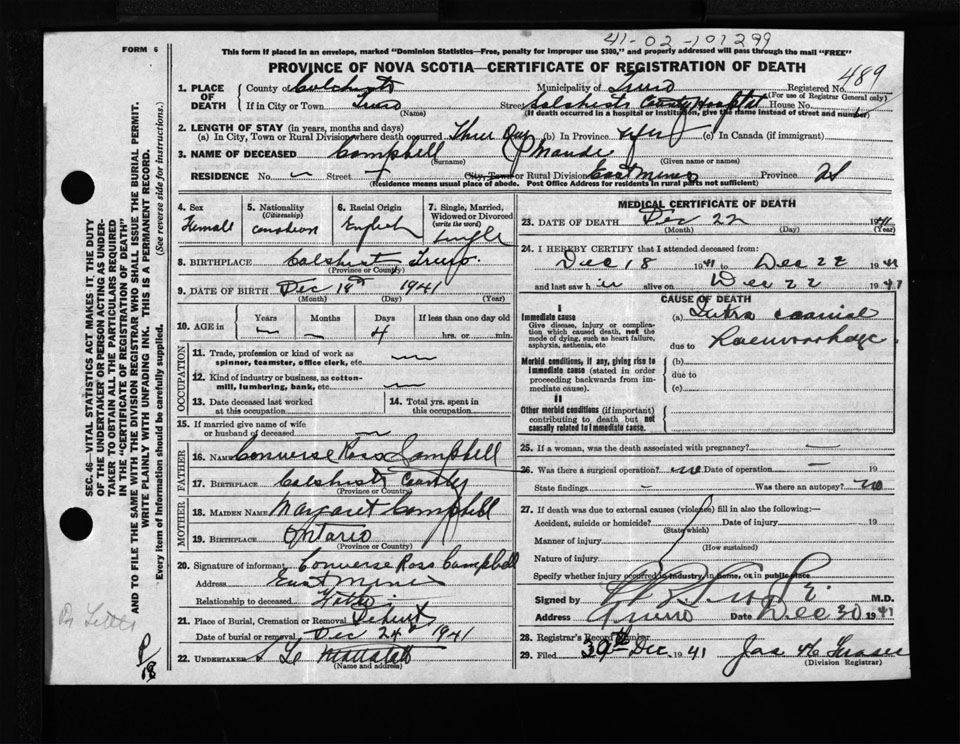 41-02-101299
FORM 6
This form if placed in an envelope, marked "Dominion Statistics—Free, penalty for improper use $300," and properly addressed will pass through the mail "FREE"
PROVINCE OF NOVA SCOTIA—CERTIFICATE OF REGISTRATION OF DEATH
489
1. PLACE OF DEATH
County of Colchester Municipality of Truro Registered No.
(For use of Registrar General only)
If in City or Town Truro Street Colchester County Hospital House No.
(Name) (If death occurred in a hospital or institution, give the name instead of street and number)
2. LENGTH OF STAY (in years, months and days)
(a) In City, Town or Rural Division where death occurred Three Days (b) In Province (c) In Canada (if immigrant)
3. NAME OF DECEASED Campbell Maude
(Surname) (Given name or names)
RESIDENCE No. — Street City, Town or Rural Division East Mines Province NS
(Residence means usual place of abode. Post Office Address for residents in rural parts not sufficient)
4. Sex
Female
5. Nationality
(Citizenship)
Canadian
6. Racial Origin
English
7. Single, Married, Widowed or Divorced
(write the word)
Single
8. BIRTHPLACE Colchester Truro
(Province or County)
9. DATE OF BIRTH Dec 18th 1941
(Month) (Day) (Year)
10. AGE in
Years Months Days If less than one day old
— — 4 hrs. or min.
OCCUPATION
11. Trade, profession or kind of work as spinner, teamster, office clerk, etc. —
12. Kind of industry or business, as cotton-mill, lumbering, bank, etc. —
13. Date deceased last worked at this occupation
14. Total yrs. spent in this occupation
15. If married give name of wife or husband of deceased —
FATHER
16. NAME Converse Ross Campbell
17. BIRTHPLACE Colchester County
(Province or County)
MOTHER
18. MAIDEN NAME Margaret Campbell
19. BIRTHPLACE Ontario
(Province or County)
20. Signature of informant Converse Ross Campbell
Address East Mines
Relationship to deceased Father
21. Place of Burial, Cremation or Removal Debert
Date of burial or removal Dec 24th 1941
22. UNDERTAKER
(Name and address)
MEDICAL CERTIFICATE OF DEATH
23. DATE OF DEATH Dec 22 1941
(Month) (Day) (Year)
24. I HEREBY CERTIFY that I attended deceased from:
Dec 18 1941 to Dec 22 1941
and last saw h er alive on Dec 22 1941
CAUSE OF DEATH
Immediate cause
Give disease, injury or complication which caused death, not the mode of dying, such as heart failure, asphyxia, asthenia, etc.
(a) Intra cranial
due to Haemorrhage
Morbid conditions, if any, giving rise to immediate cause (stated in order proceeding backwards from immediate cause).
(b)
due to
(c)
II
Other morbid conditions (if important) contributing to death but not causally related to immediate cause.
25. If a woman, was the death associated with pregnancy? —
26. Was there a surgical operation? no Date of operation — 19
State findings — Was there an autopsy? no
27. If death was due to external causes (violence) fill in also the following:—
Accident, suicide or homicide? Date of injury 19
(State which)
Manner of injury
(How sustained)
Nature of injury
Specify whether injury occurred in industry, in home, or in public place
Signed by M.D.
Address Truro Date Dec 30 1941
28. Registrar's Record Number
29. Filed Dec. 1941 Jas
(Division Registrar)
SEC. 46—VITAL STATISTICS ACT MAKES IT THE DUTY
OF THE UNDERTAKER OR PERSON ACTING AS UNDER-
TAKER TO OBTAIN ALL THE PARTICULARS REQUIRED
IN THE "CERTIFICATE OF REGISTRATION OF DEATH"
AND TO FILE THE SAME WITH THE DIVISION REGISTRAR WHO SHALL ISSUE THE BURIAL PERMIT.
WRITE PLAINLY WITH UNFADING INK. THIS IS A PERMANENT RECORD.
Every item of Information should be carefully supplied. (See reverse side for instructions.)